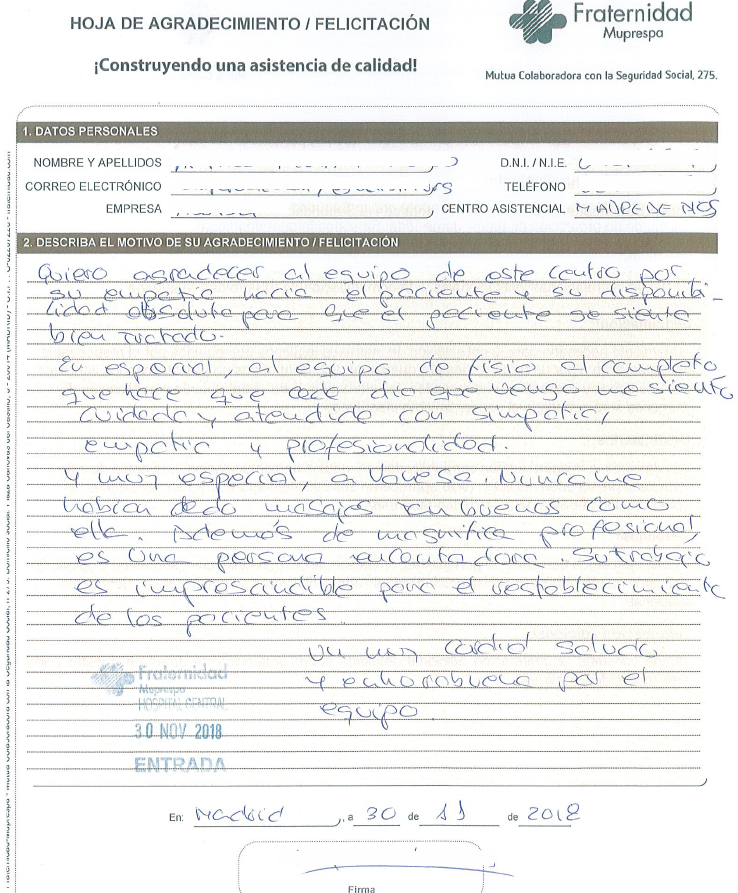 HOJA DE AGRADECIMIENTO / FELICITACIÓN
Fraternidad
Muprespa
¡Construyendo una asistencia de calidad!
Mutua Colaboradora con la Seguridad Social, 275.
1. DATOS PERSONALES
NOMBRE Y APELLIDOS
D.N.I. / N.I.E.
CORREO ELECTRÓNICO
TELÉFONO
EMPRESA
CENTRO ASISTENCIAL MADRE DE NES
2. DESCRIBA EL MOTIVO DE SU AGRADECIMIENTO / FELICITACIÓN
Quiero agradecer al equipo de este centro por
su empatia hacia el paciente y su disponibi-
lidad absoluta para que el paciente se sienta
bien tratado.
En especial, al equipo de fisio al completo
que hace que cada dia que vengo me sienta
cuidada y atendida con simpatia,
empatia y profesionalidad.
Y muy especial, a Vanesa. Nunca me
habian dado masajes tan buenos como
ella. Además de magnifica profesional,
es una persona encantadora. Su trabajo
es imprescindible para el restablecimiento
de los pacientes.
Un muy cordial saludo
y enhorabuena por el
equipo.
Fraternidad
Muprespa
HOSPITAL CENTRAL
30 NOV 2018
ENTRADA
En: Madrid, a 30 de 11 de 2018
Firma